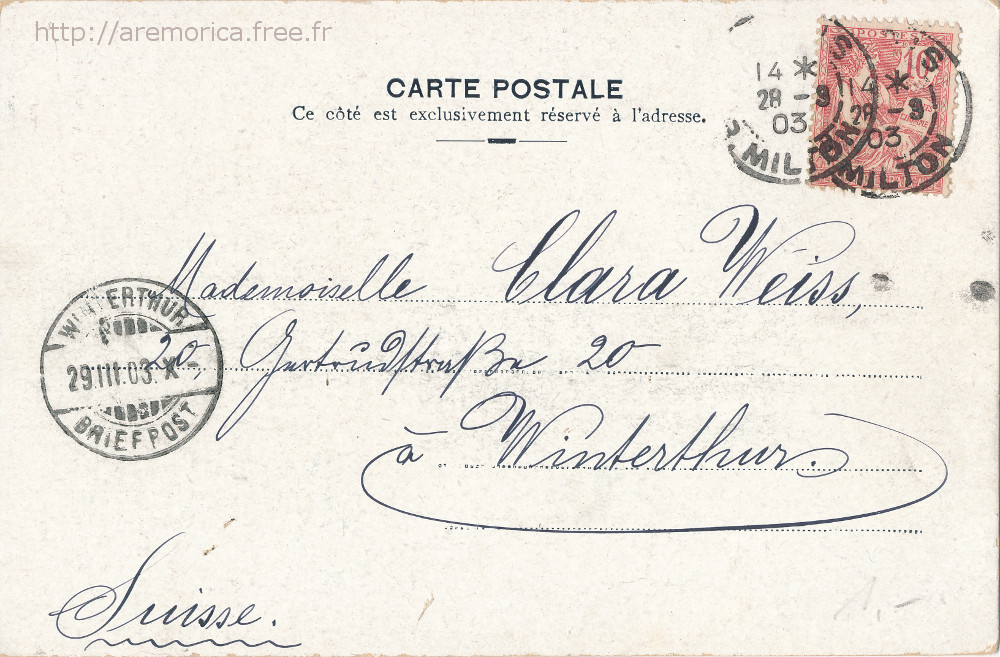 http://aremorica.free.fr
CARTE POSTALE
Ce côté est exclusivement réservé à l'adresse.
POSTE
10
S
14 *
28 - 3
03
MILTON
S
14 *
29 - 3
03
MILTON
Mademoiselle Clara Weiss,
20, Gertrudstraße 20
à Winterthur.
WINTERTHUR
29.III.03. X -
BRIEFPOST
Suisse.
1.-